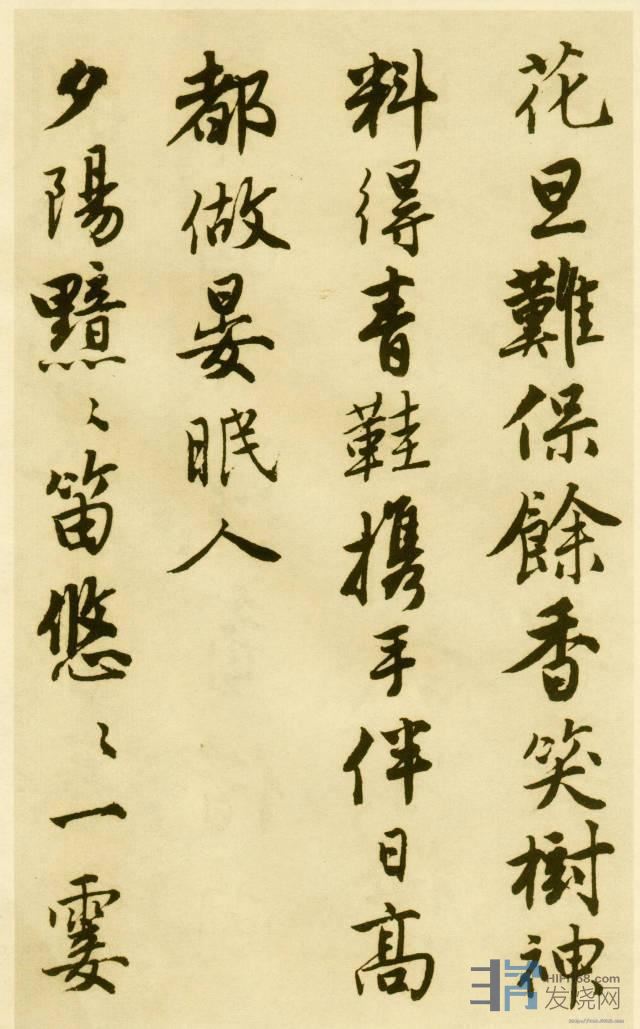 花旦難保餘香笑樹神
料得青鞋攜手伴日高
都做晏眠人
夕陽黯〻笛悠〻一霎
HIFI168.com
发烧网